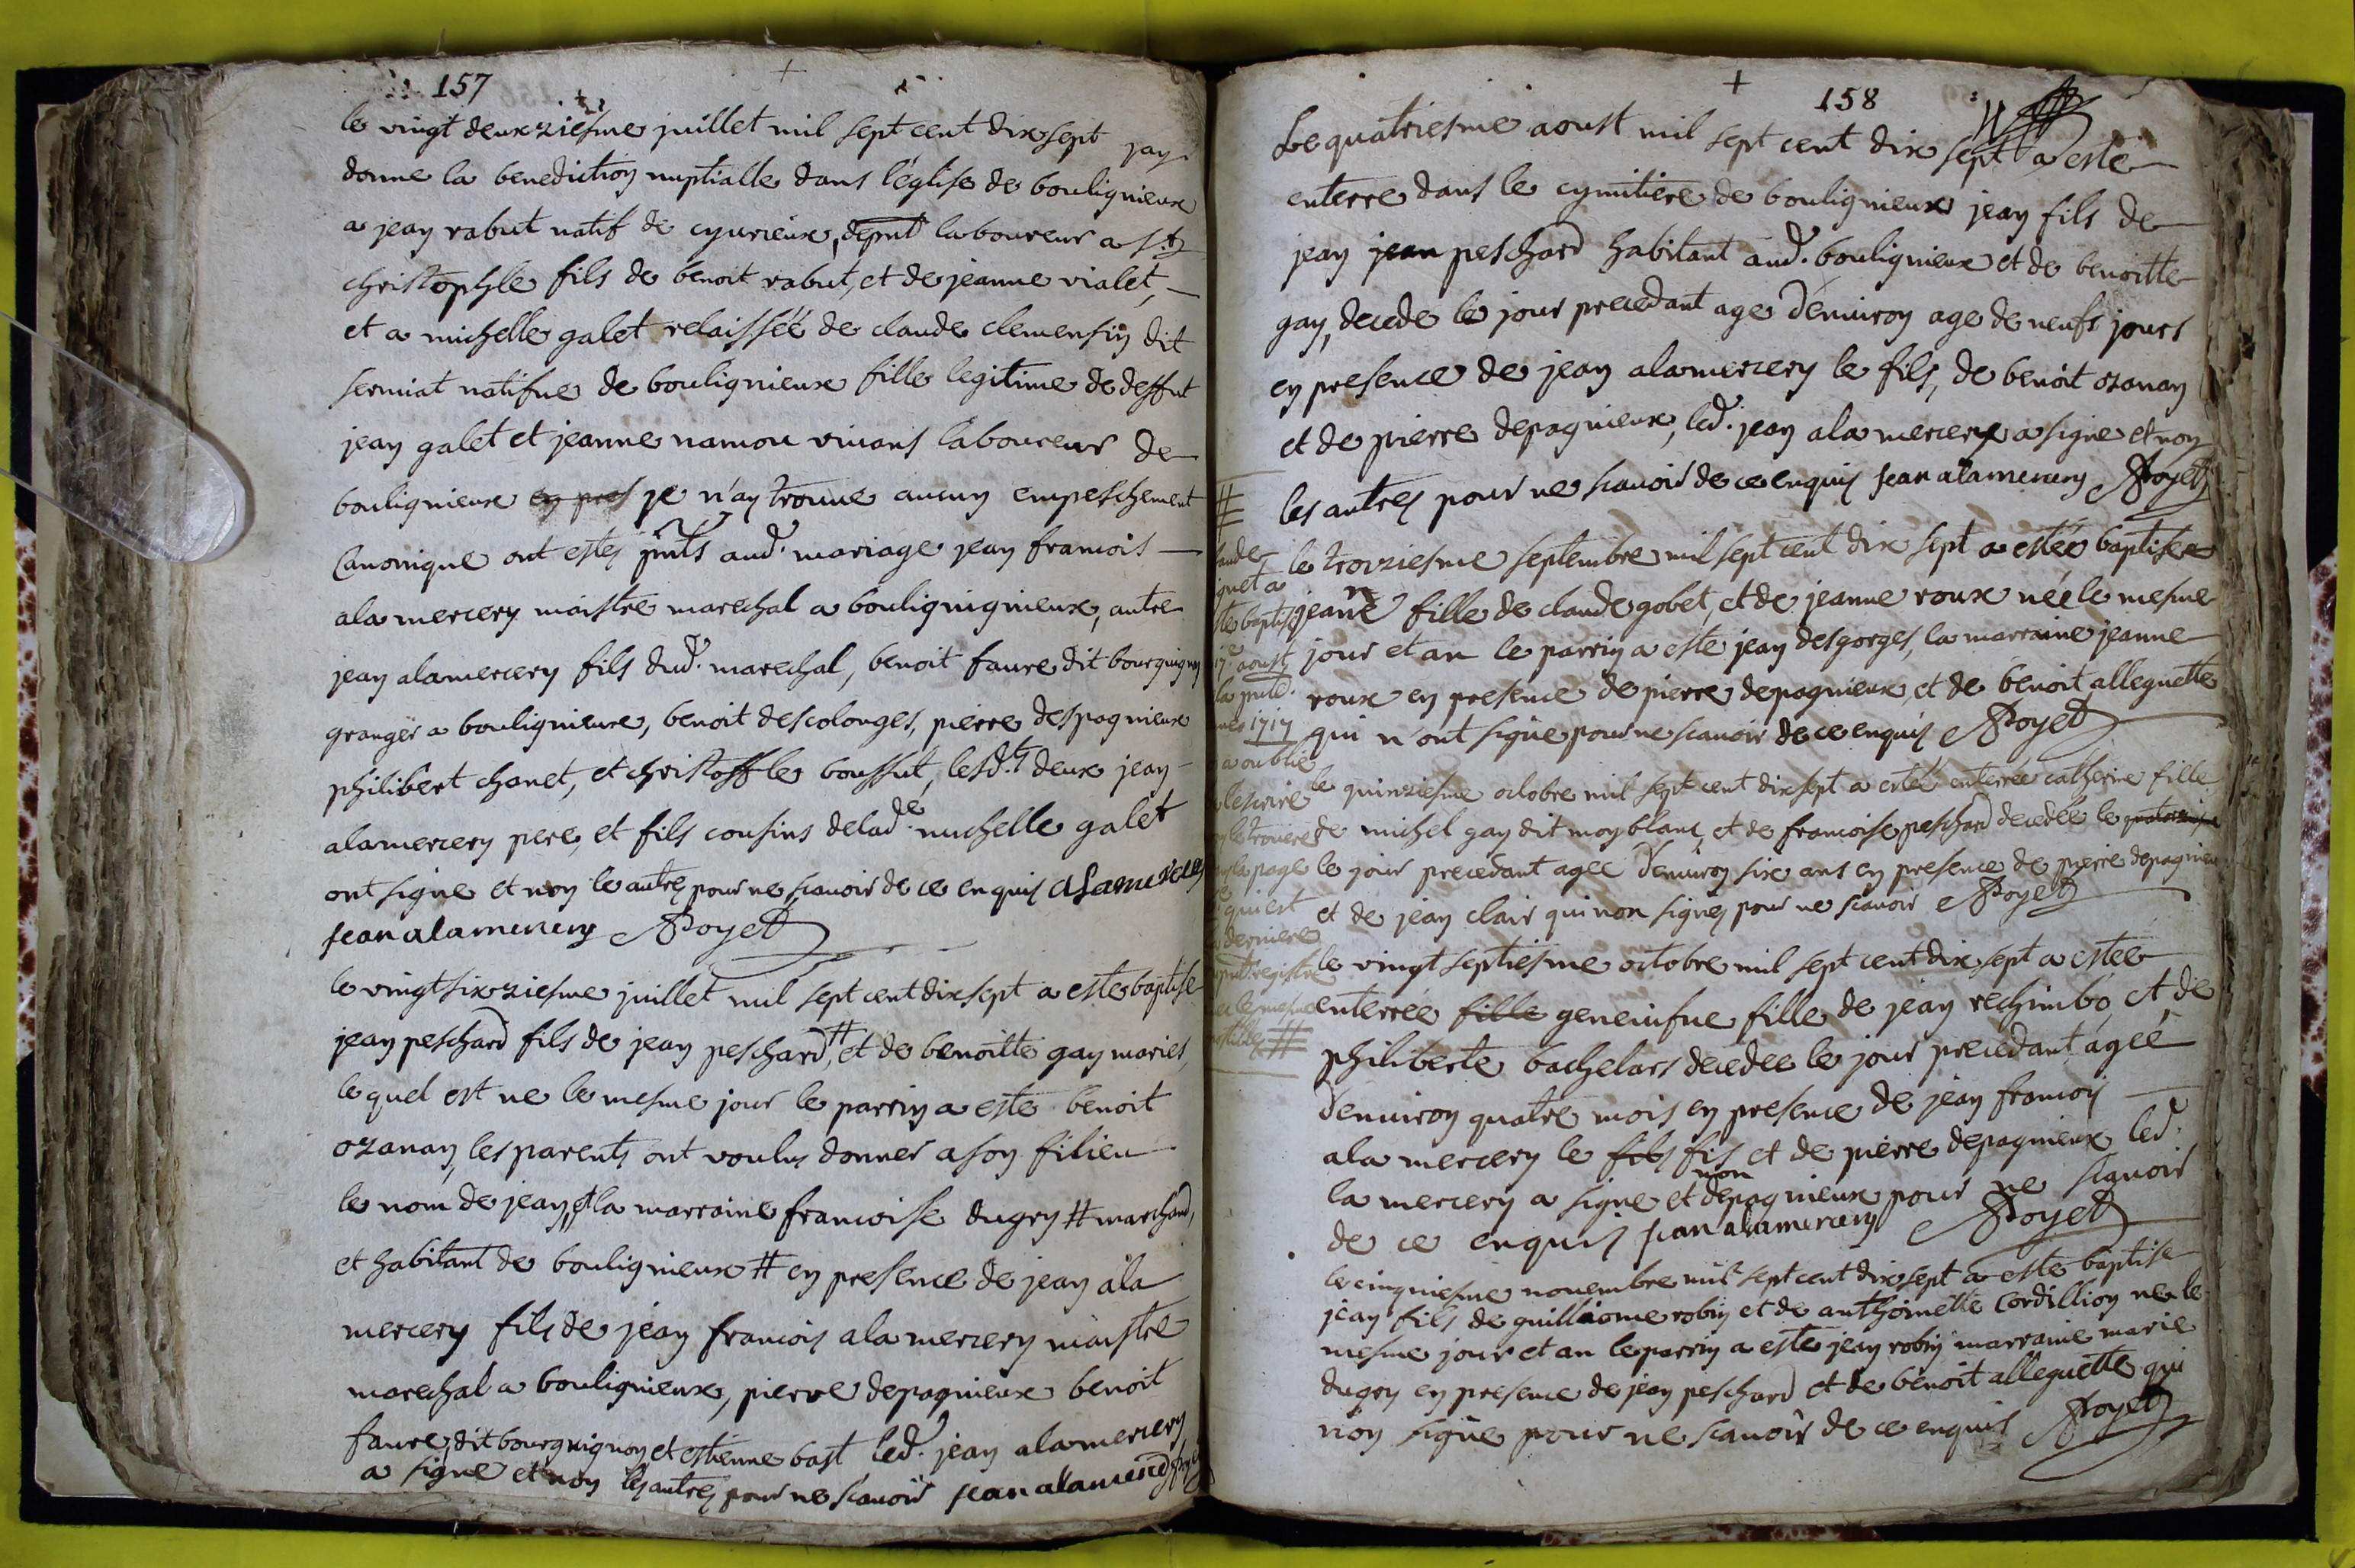 157
le vingt deuxziesme juillet mil sept cent dix sept jay
donne la benediction nuptialle dans l'église de bouligneux
a jean rabut natif de cyurieux, dept laboureur a st
christophle fils de benoit rabut, et de jeanne vialet,
et a michelle galet relaissée de claude clemensin dit
sermiat natifue de bouligneux fille legitime de deffut
jean galet et jeanne namou vivans laboureur de
bouligneux en pres je n'ay trouue aucun empeschement
Canonique ont estes pnts aud. mariage jean francois
alamercery maistre marechal a bouligneux, autre
jean alamercery fils dud. marechal, benoit faure dit bourguignon
granger a bouligneux, benoit descolonges, pierre despagnieux
philibert chanet, et christoffle boussut, lesd.ts deux jean
alamercery pere, et fils cousins delad. michelle galet
ont signe et non le autres pour ne scauoir de ce enquis alamercery
jean alamercery Royet
le vingt sixziesme juillet mil sept cent dix sept a este baptise
jean peschard fils de jean peschard, # et de benoitte gay maries,
le quel est ne le mesme jour le parrin a este benoit
ozanan, les parents ont voulus donner a son filieu
le nom de jean, et la marraine francoise dugry # marchand,
et habitant de bouligneux # en presence de jean ala
mercery fils de jean francois alamercery maistre
marechal a bouligneux, pierre depagnieux benoit
faure dit bourguignon et estienne bast led. jean alamercery
a signe et non les autres pour ne scauoir jean alamercery
158
Le quatriesme aoust mil sept cent dix sept a este
enterre dans le cymitiere de bouligneux jean fils de
jean jean peschard habitant aud. bouligneux et de benoitte
gay, decede le jour precedant age d'enuiron age de neufs jours
en presence de jean alamercery le fils, de benoit ozanan
et de pierre depagnieux, led. jean alamercery a signe et non
les autres pour ne scauoir de ce enquis jean alamercery Royet
le trorziesme septembre mil sept cent dix sept a estée baptisée
jeanne fille de claude gobet, et de jeanne roux née le mesme
jour et an le parrin a este jean desgorges, la marraine jeanne
roux en presence de pierre depagnieux, et de benoit alleguette
qui n'ont signe pour ne scauoir de ce enquis Royet
le quinziesme octobre mil sept cent dix sept a estée enterrée catherine fille
de michel gay dit moyblanc, et de francoise peschard decedée le quatorziesme
le jour precedant agee d'enuiron six ans en presence de pierre depagnieux
et de jean clair qui non signes pour ne scauoir Royet
le vingt septiesme octobre mil sept cent dix sept a estee
enterrée fille geneuifue fille de jean rechimbo, et de
philiberte bachelars decedee le jour precedant agée
d'enuiron quatre mois en presence de jean francois
ala mercery le fils fils et de pierre depagnieux led.
la mercery a signe et non depagnieux pour ne scauoir
de ce enquis jean alamercery Royet
le cinquiesme nouembre mil sept cent dix sept a este baptise
jean fils de guilliaome robin et de anthoinette Cordillion ne le
mesme jour et an le parrin a este jean robin marraine marie
dugry en presence de jean peschard et de benoit alleguette qui
n'on signe pour ne scauoir de ce enquis Royet
#
aoust
1717
a oublie
la page
qui est
derniere
#